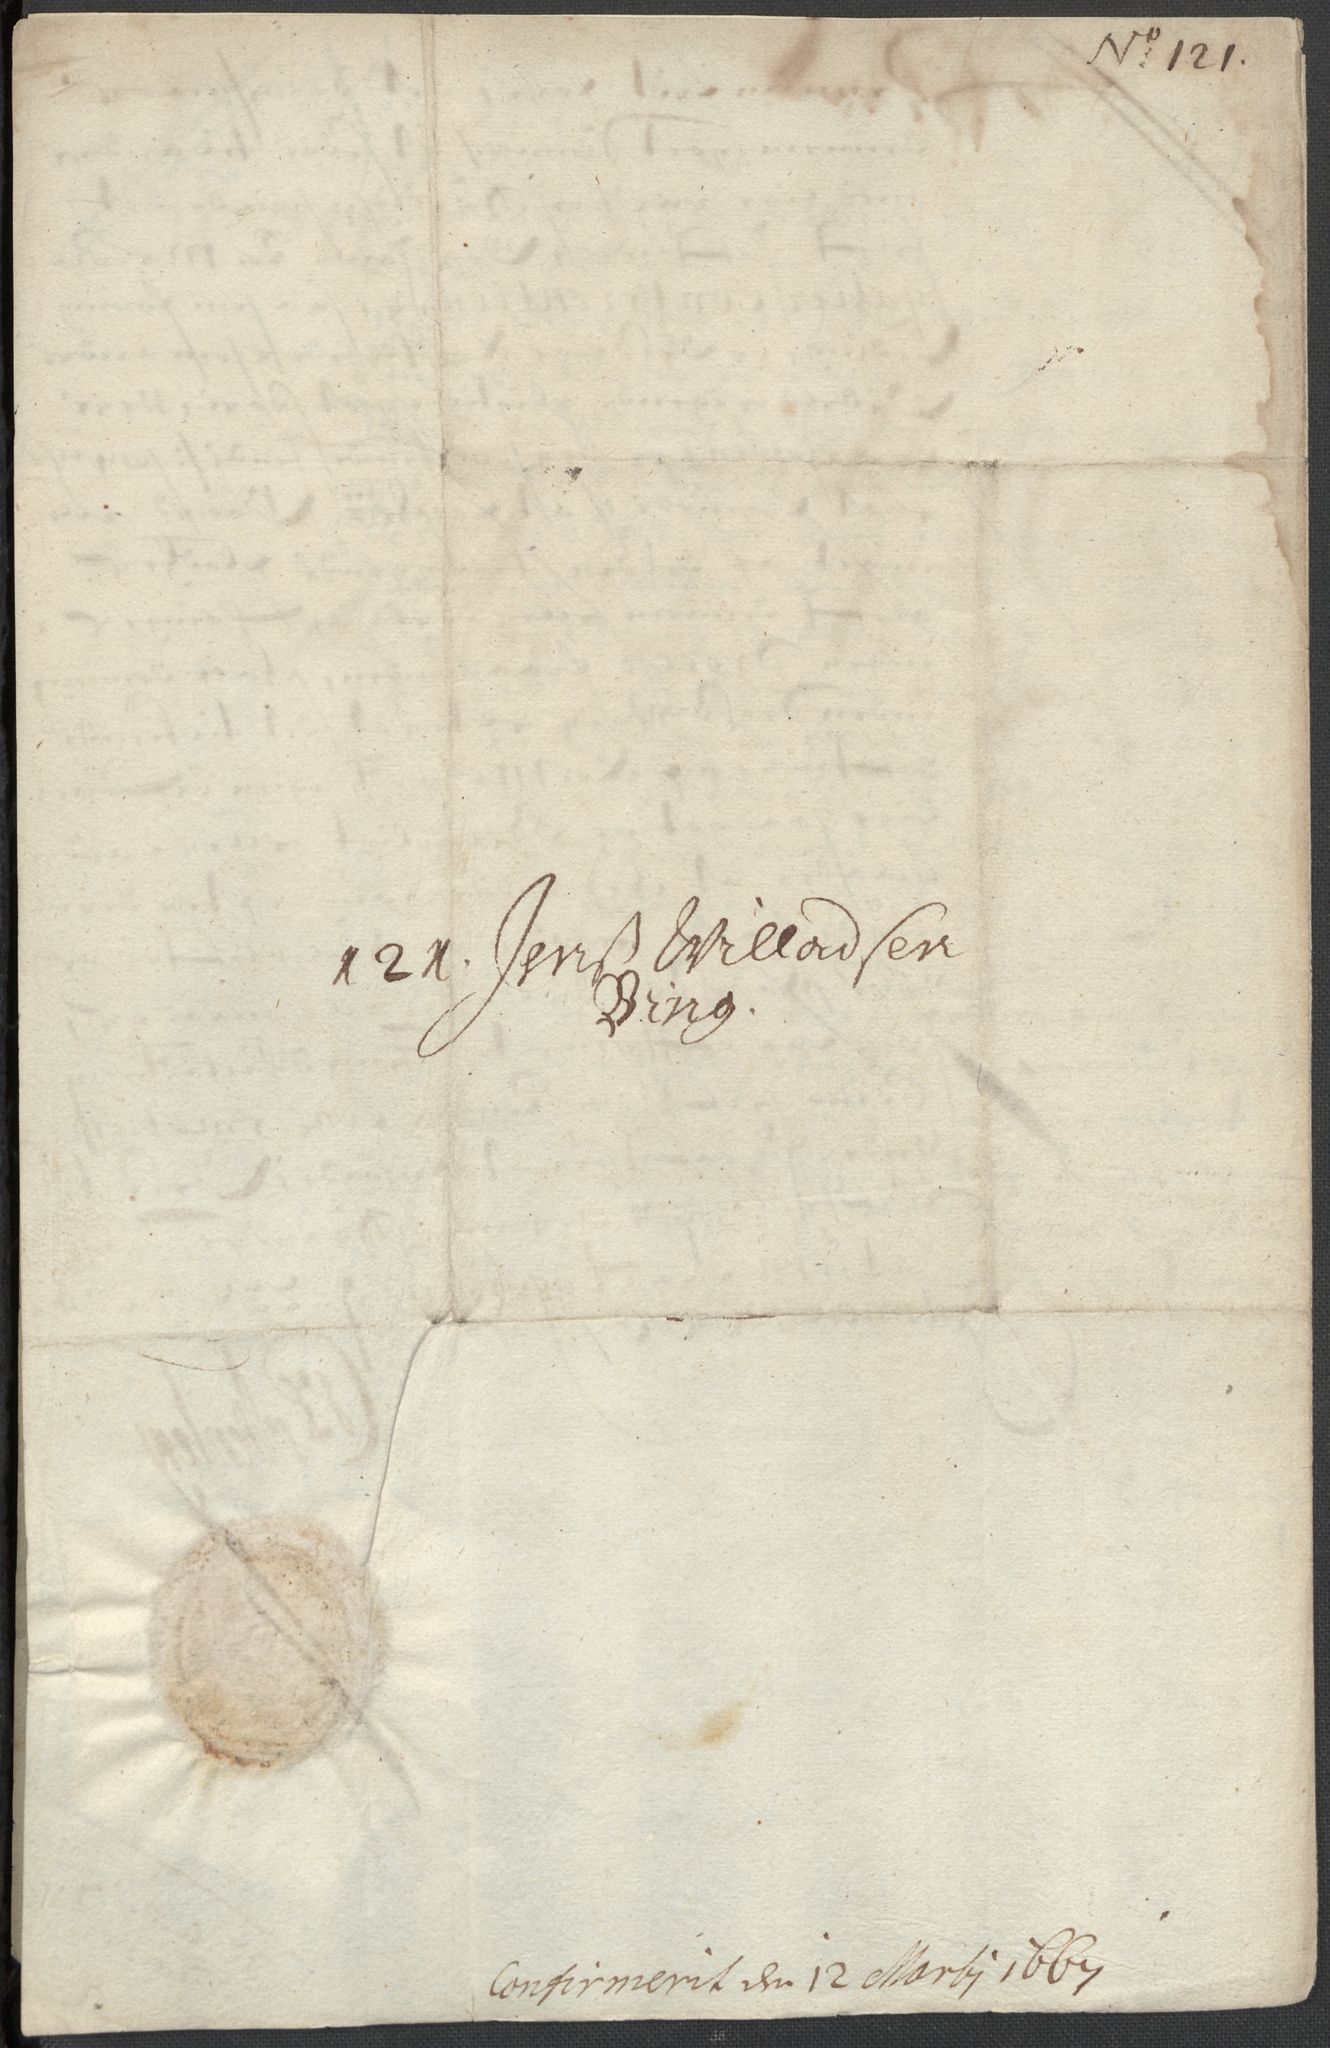 No 121.
121. Jenß Willadsen
Bing.
Confirmerit den 12 Martij 1667